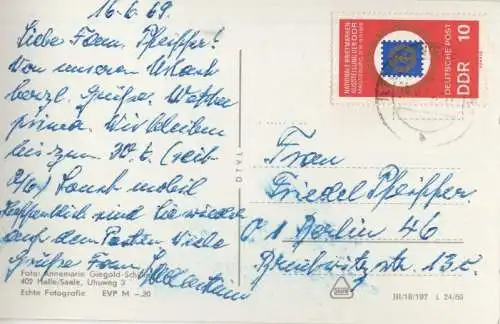 16.6.69.
Liebe Fam. Pfeiffer!
Von unserem Urlaub
herzl. Grüße. Wetter
prima. Wir bleiben
bis zum 30.6. (seit
Sonst mobil
sind Sie wieder
auf dem Posten. Viele
Grüße Fam.
Foto: Annemarie Giegold-Schilling
402 Halle/Saale, Uhuweg 3
Echte Fotografie EVP M –.20
DTVL
NATIONALE BRIEFMARKEN
AUSSTELLUNG DER DDR
DEUTSCHE POST
DDR 10
Frau
Friedel Pfeiffer
1 Berlin 46
13c.
III/18/197 L 24/69